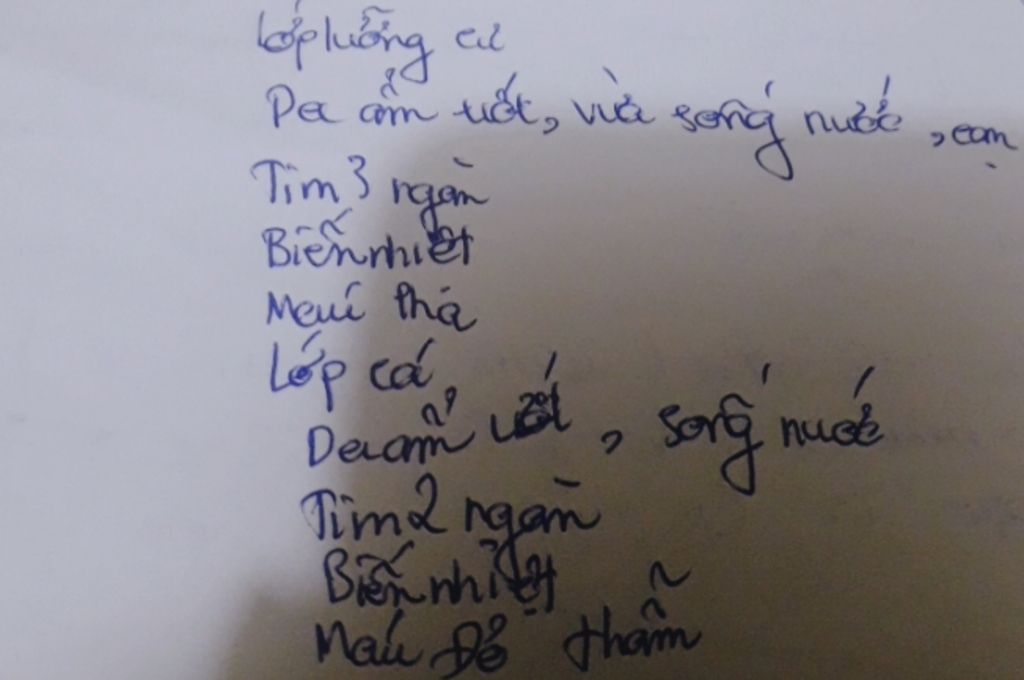 Lớp lưỡng cư
Da ẩm ướt, vừa sống nước, cạn
Tim 3 ngăn
Biến nhiệt
Máu Pha
Lớp cá
Da ẩm ướt, sống nước
Tim 2 ngăn
Biến nhiệt
Máu Đỏ thẫm